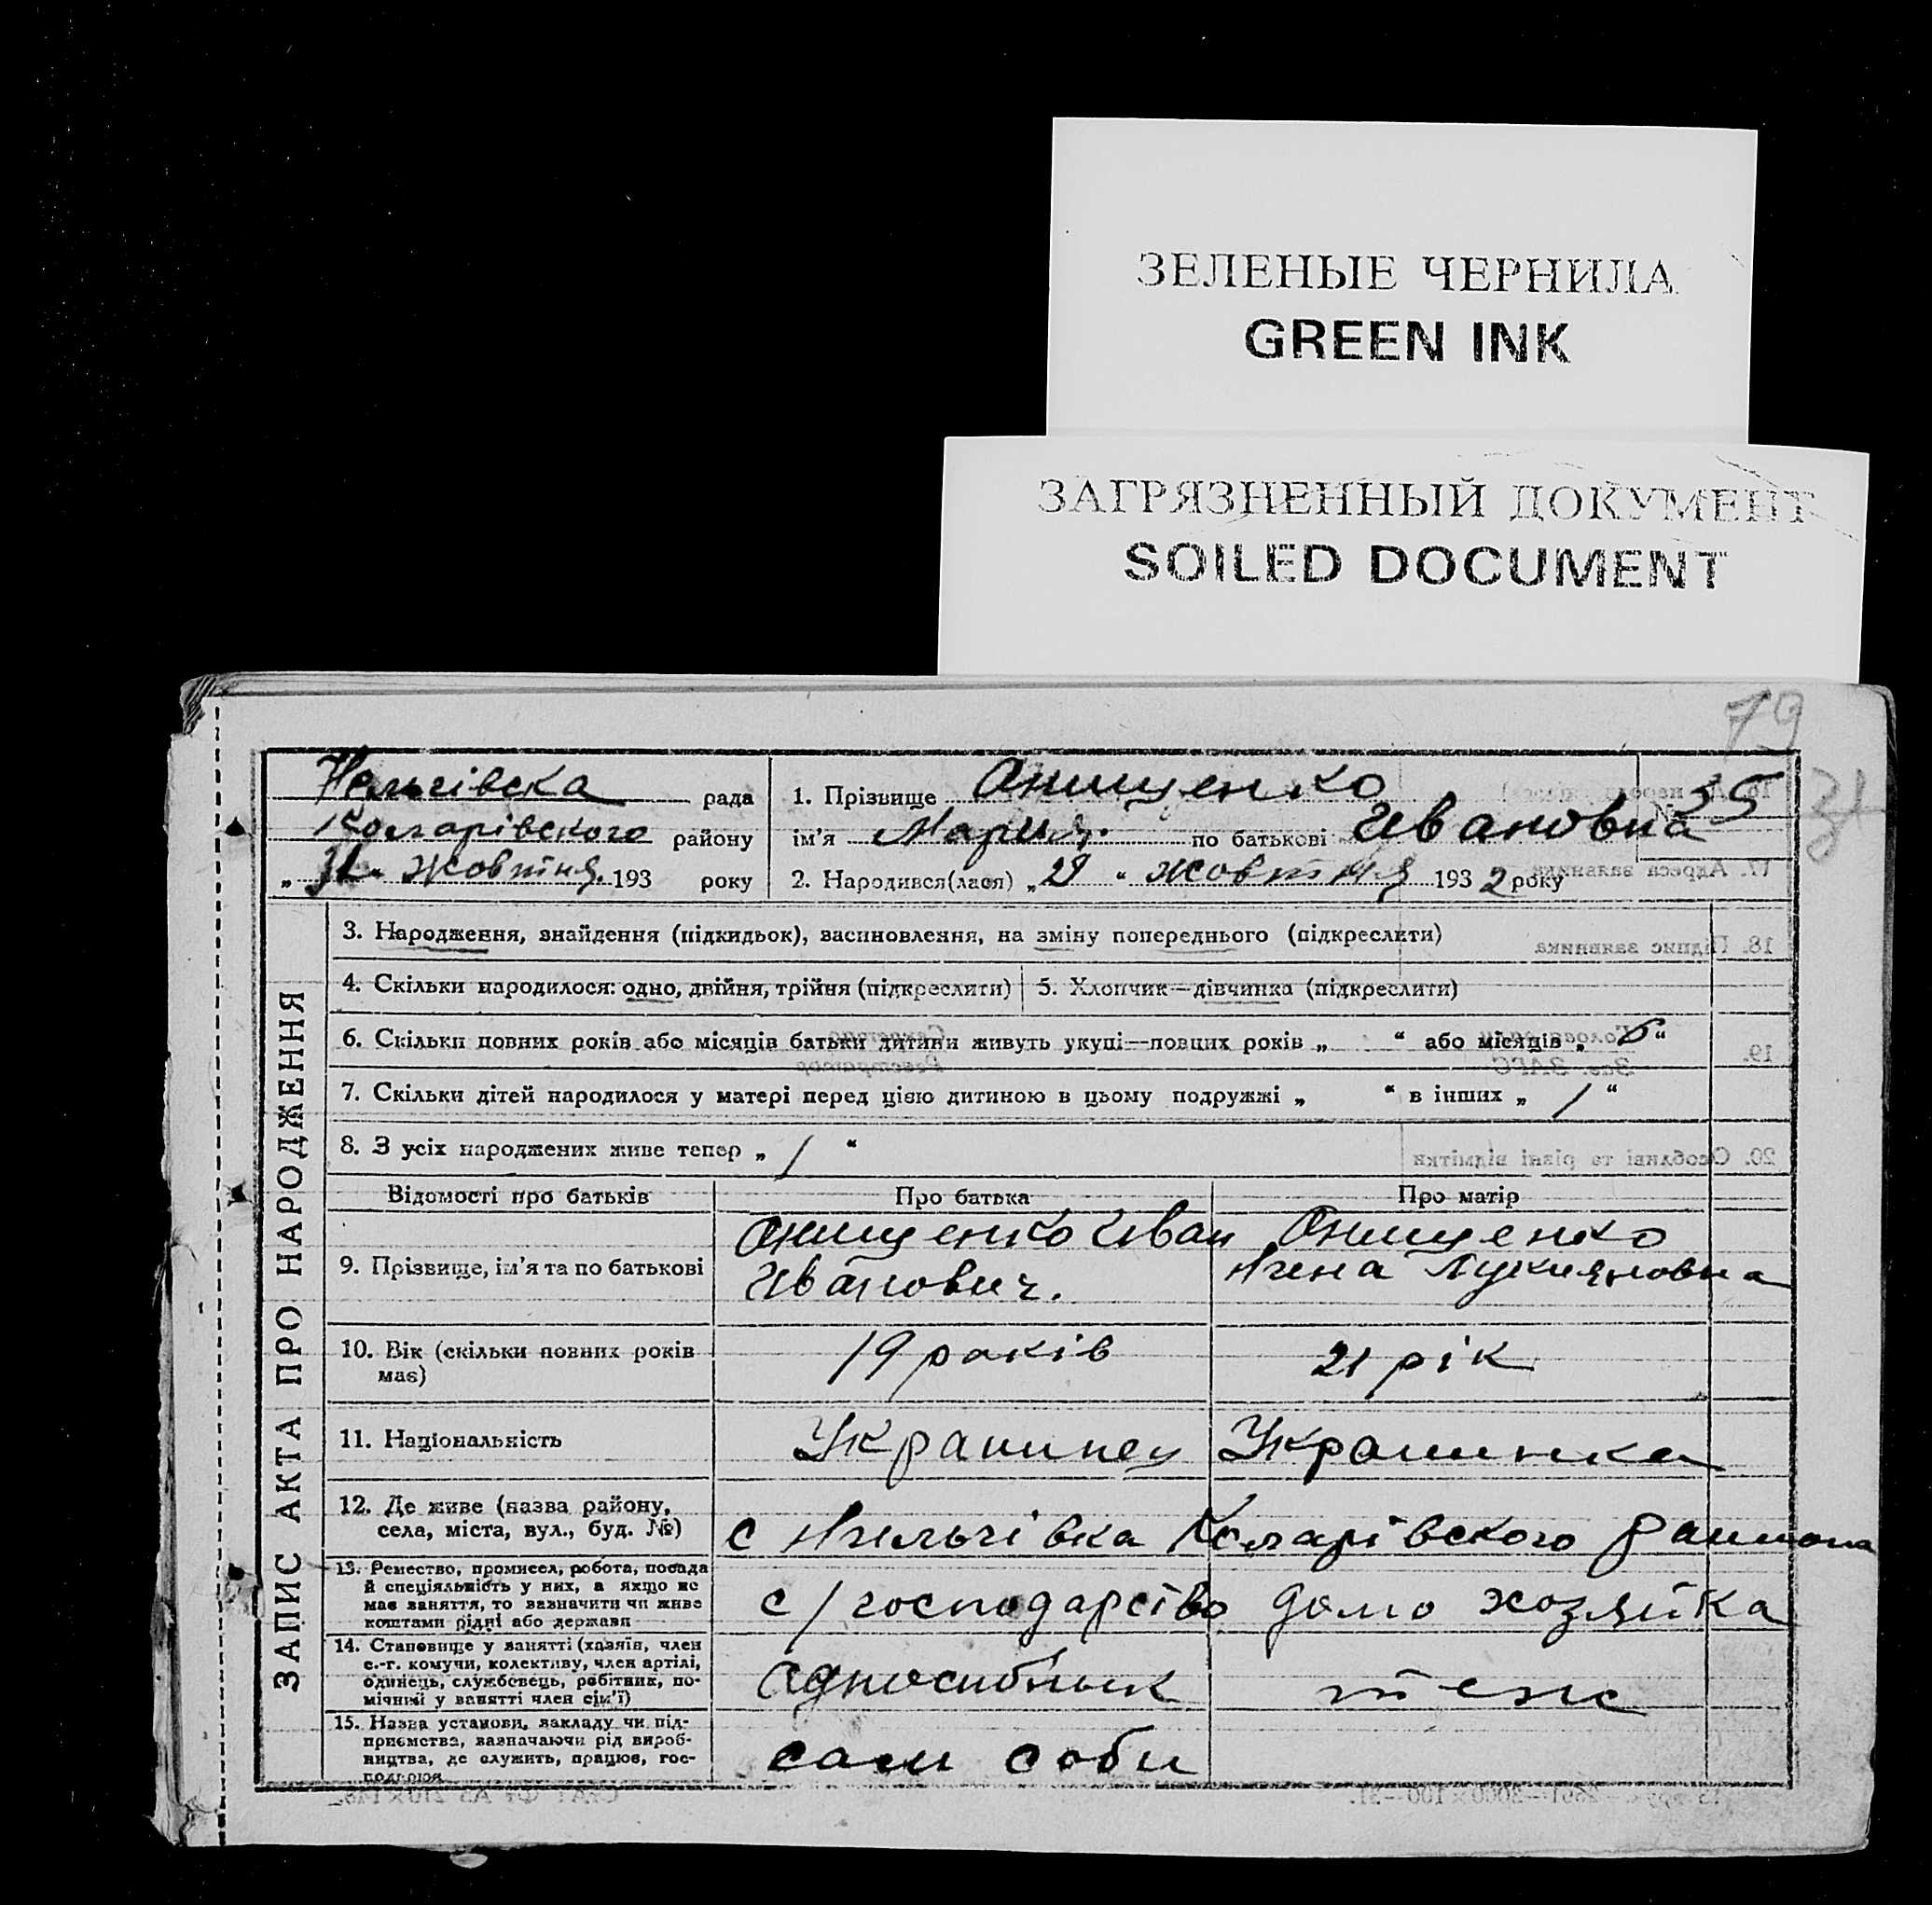 ЗЕЛЕНЫЕ ЧЕРНИЛА
GREEN INK
ЗАГРЯЗНЕННЫЙ ДОКУМЕНТ
SOILED DOCUMENT
79
31
Нельгівска рада
Коларівского району
„31“ жовтня 193 року
1. Прізвище Онищенко
№ 35
ім’я Мария по батькові Ивановна
2. Народився(лася) „28“ жовтня 1932 року
ЗАПИС АКТА ПРО НАРОДЖЕННЯ
3. Народження, знайдення (підкидьок), засиновлення, на зміну попереднього (підкреслити)
4. Скільки народилося: одно, двійня, трійня (підкреслити) 5. Хлопчик—дівчинка (підкреслити)
6. Скільки повних років або місяців батьки дитини живуть укупі—повних років „ “ або місяців „6“
7. Скільки дітей народилося у матері перед цією дитиною в цьому подружжі „ “ в інших „1“
8. З усіх народжених живе тепер „1“
Відомості про батьків Про батька Про матір
9. Прізвище, ім’я та по батькові
Онищенко Иван
Иванович.
Онищенко
Лукияновна
10. Вік (скільки повних років
має)
19 років 21 рік
11. Національність Украинец Украинка
12. Де живе (назва району,
села, міста, вул., буд. №)
с Нельгівка Коларівского
13. Ремество, промисел, робота, посада
й спеціяльність у них, а якщо не
має заняття, то зазначити чи живе
коштами рідні або держави
с/господарство домо хозяйка
14. Становище у занятті (хазяїн, член
с.-г. комуни, колективу, член артілі,
одинець, службовець, робітник, по-
мічний у занятті член сім’ї)
односибник теж
15. Назва установи, закладу чи під-
приємства, зазначаючи рід вироб-
ництва, де служить, працює, гос-
подарює
сам соби